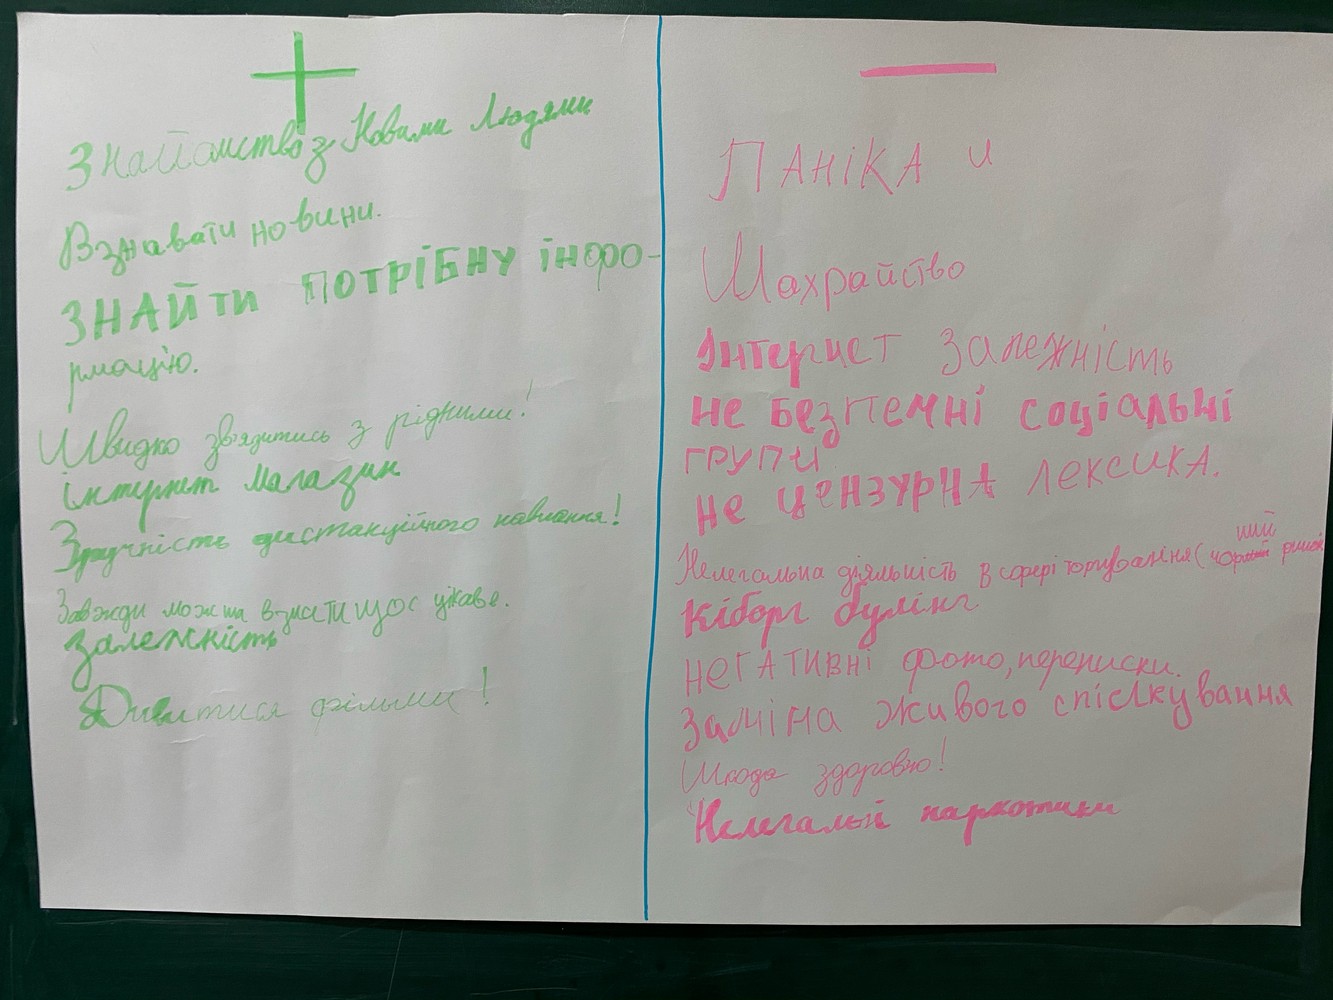 +
Знайомство з Новими Людями
Взнавати новини.
ЗНАЙТИ ПОТРІБНУ інфо-
рмацію.
Швидко звязитись з рідними!
інтернет магазин
Зручність дистанційного навчання!
Завжди можна взнати щос цікаве.
Залежність
Дивитися фільми!
—
ПАНіКА и
Шахрайство
Інтернет Залежність
не безпемчні соціальні
групи
не цензурна лексика.
Нелегальна діяльність в сфері торгування (чорний ринок
Кіборг булінг
негативні фото, переписки.
Заміна живого спілкування
Шкода здоровю!
Нелегальні наркотики